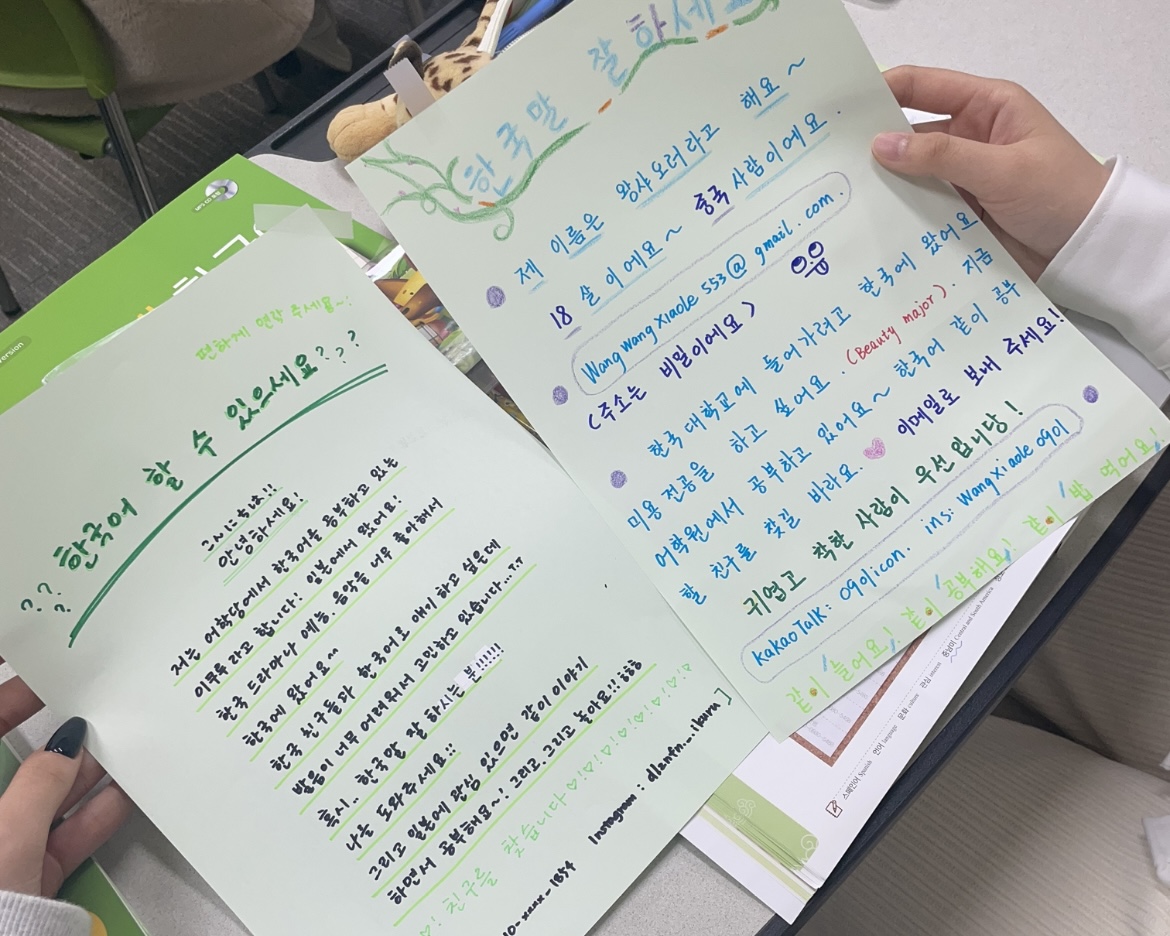 편하게 연락 주세요~!
??? 한국어 할 수 있으세요???
こんにちは!!
안녕하세요!!
저는 어학당에서 한국어를 공부하고 있는
이쿠루 라고 합니다! 일본에서 왔어요!
한국 드라마나 예능, 음악을 너무 좋아해서
한국에 왔어요~
한국 친구들과 한국어로 얘기 하고 싶은데
발음이 너무 어려워서 고민하고 있습니다...ㅠㅠ
혹시.. 한국말 잘 하시는 분!!!!!!
나를 도와주세요!!
그리고 일본에 관심 있으면 같이 이야기
하면서 공부해요~! 그리고, 그리고 놀아요!! ㅎㅎㅎ
♡! 친구를 찾습니다♡!♡!♡!♡!♡!♡!♡!
10-xxxx-1854 Instagram : dlbmfn._.ikuru ]
한국말 잘 하세요
제 이름은 왕샤오러라고 해요~
18 살이에요~ 중국 사람이에요.
WangWangXiaole553@gmail.com.
(주소는 비밀이에요)
한국 대학교에 들어가려고 한국에 왔어요
미용 전공을 하고 싶어요. (Beauty major). 지금
어학원에서 공부하고 있어요~ 한국어 같이 공부
할 친구를 찾길 바라요. 이메일로 보내 주세요!
귀엽고 착한 사람이 우선입니당!
kakaoTalk: 0901icon. ins: WangXiaole0901
같이 놀어요! 같이 공부해요! 같이 밥 먹어요!
version
스페인어 Spanish
언어 language
문화 culture
관심 interest
중남미 Central and South America